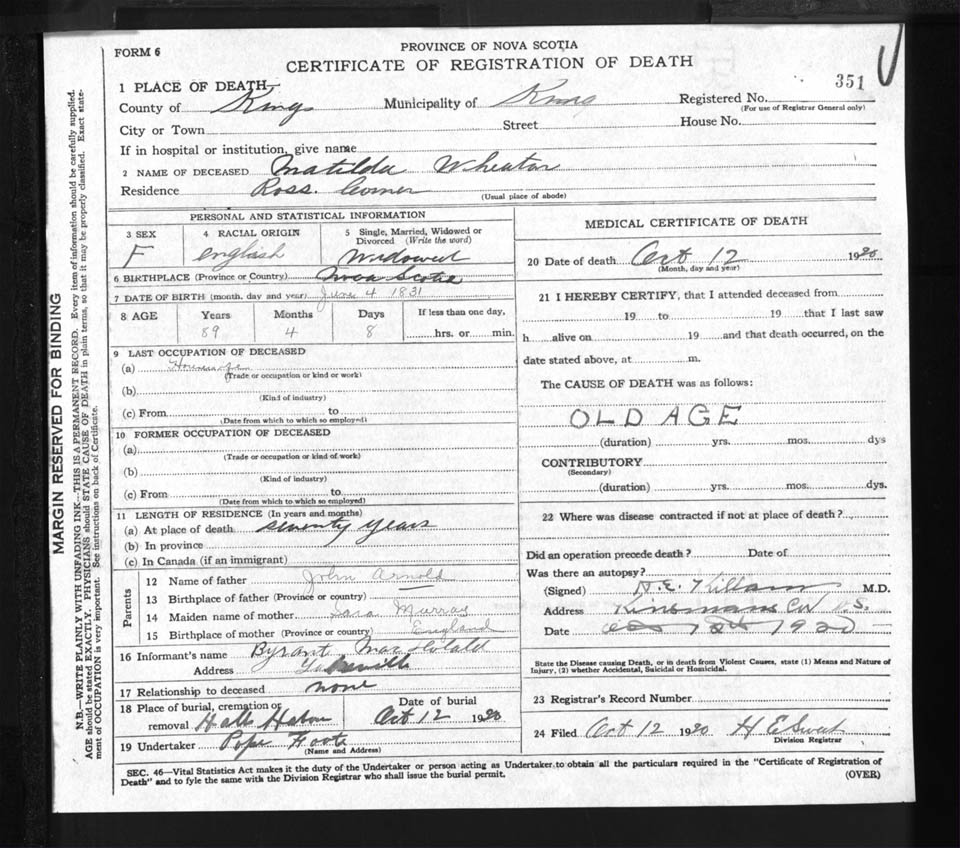 FORM 6
PROVINCE OF NOVA SCOTIA
CERTIFICATE OF REGISTRATION OF DEATH
351
1 PLACE OF DEATH
County of Kings Municipality of Kings Registered No.
(For use of Registrar General only)
City or Town Street House No.
If in hospital or institution, give name
2 NAME OF DECEASED Matilda Wheaton
Residence Ross. Corner (Usual place of abode)
PERSONAL AND STATISTICAL INFORMATION
3 SEX 4 RACIAL ORIGIN 5 Single, Married, Widowed or Divorced (Write the word)
F english Widowed
6 BIRTHPLACE (Province or Country) Nova Scotia
7 DATE OF BIRTH (month, day and year) June 4 1831
8 AGE Years Months Days If less than one day,
89 4 8 hrs. or min.
9 LAST OCCUPATION OF DECEASED
(a)
(Trade or occupation or kind or work)
(b)
(Kind of industry)
(c) From to
(Date from which to which so employed)
10 FORMER OCCUPATION OF DECEASED
(a)
(Trade or occupation or kind of work)
(b)
(Kind of industry)
(c) From to
(Date from which to which so employed)
11 LENGTH OF RESIDENCE (In years and months)
(a) At place of death seventy years
(b) In province
(c) In Canada (if an immigrant)
Parents
12 Name of father John Arnold
13 Birthplace of father (Province or country)
14 Maiden name of mother Sara Murray
15 Birthplace of mother (Province or country) England
16 Informant's name Byrant
Address
17 Relationship to deceased none
18 Place of burial, cremation or removal Date of burial
Oct 12 1920
19 Undertaker Pope Foote
(Name and Address)
MEDICAL CERTIFICATE OF DEATH
20 Date of death Oct 12 1920
(Month, day and year)
21 I HEREBY CERTIFY, that I attended deceased from
19 to 19 that I last saw
h alive on 19 and that death occurred, on the
date stated above, at m.
The CAUSE OF DEATH was as follows:
OLD AGE
(duration) yrs. mos. dys
CONTRIBUTORY
(Secondary)
(duration) yrs. mos. dys.
22 Where was disease contracted if not at place of death?
Did an operation precede death? Date of
Was there an autopsy?
(Signed) M.D.
Address Kinsmans Cor N.S.
Date Oct 12th 1920
State the Disease causing Death, or in death from Violent Causes, state (1) Means and Nature of
Injury, (2) whether Accidental, Suicidal or Homicidal.
23 Registrar's Record Number
24 Filed Oct 12 1920
Division Registrar
SEC. 46—Vital Statistics Act makes it the duty of the Undertaker or person acting as Undertaker to obtain all the particulars required in the "Certificate of Registration of
Death" and to fyle the same with the Division Registrar who shall issue the burial permit.
(OVER)
MARGIN RESERVED FOR BINDING
N.B.—WRITE PLAINLY WITH UNFADING INK—THIS IS A PERMANENT RECORD. Every item of information should be carefully supplied.
AGE should be stated EXACTLY. PHYSICIANS should STATE CAUSE OF DEATH in plain terms, so that it may be properly classified. Exact state-
ment of OCCUPATION is very important. See instructions on back of Certificate.